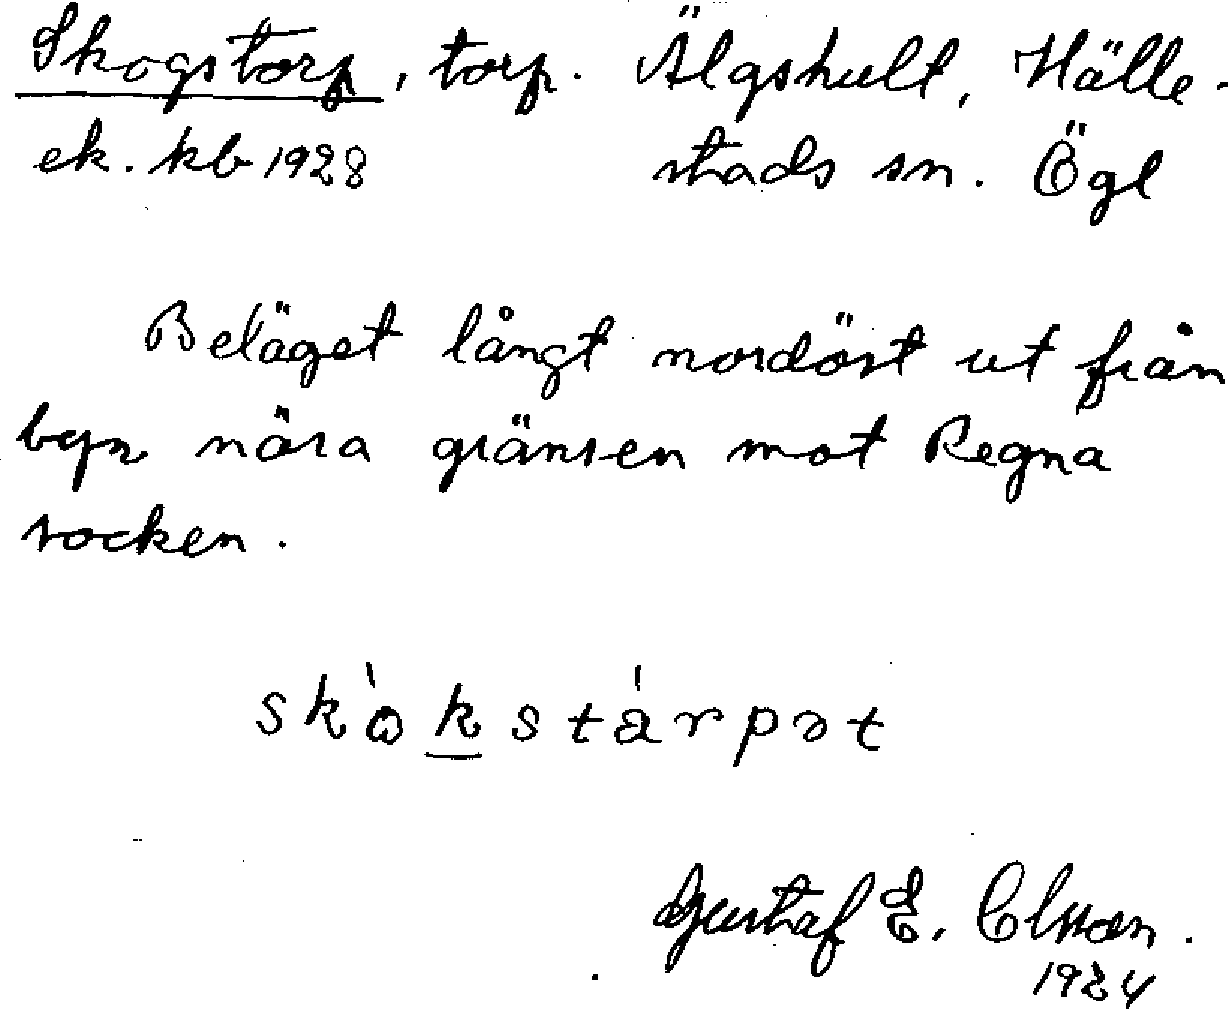 Skogstorp, torp. Älgshult, Hälle-
ek. kb 1928 stads sn. Ögl
Beläget långt nordöst ut från
byn nära gränsen mot Regna
socken.
skò̀kstárpət
Gustaf E. Olsson.
1924